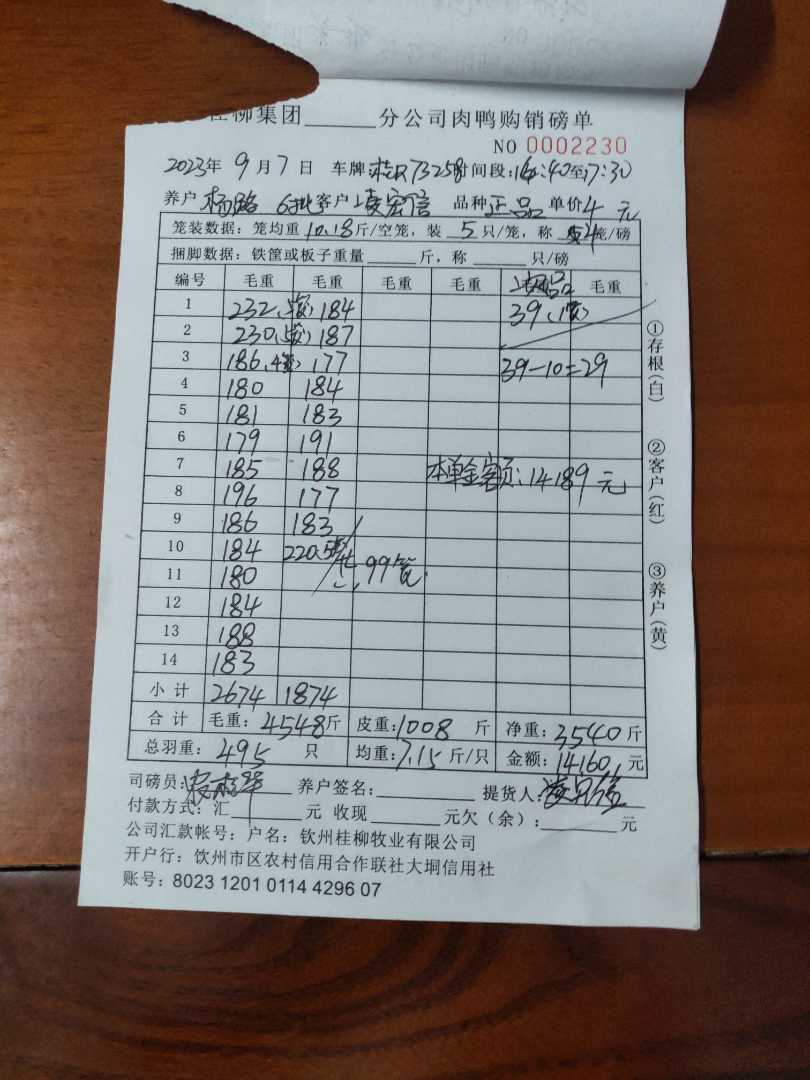 桂柳集团______分公司肉鸭购销磅单
NO 0002230
2023年 9月7日 车牌:桂R73258时间段:16:40至17:30
养户 杨路 6批客户 凌宏信 品种正品 单价4元
笼装数据:笼均重10.18斤/空笼,装 5 只/笼,称 4笼/磅
捆脚数据:铁筐或板子重量______斤,称______只/磅
编号 毛重 毛重 毛重 毛重 次品 毛重
1 232(5笼) 184 39(1笼)
2 230(5笼) 187
3 186(4笼) 177 39-10=29
4 180 184
5 181 183
6 179 191
7 185 188 本单金额:14189元
8 196 177
9 186 183
10 184 220.5笼
11 180 共99笼
12 184
13 188
14 183
小计 2674 1874
合计 毛重:4548斤 皮重:1008 斤 净重:3540斤
总羽重:495 只 均重:7.15斤/只 金额:14160元
司磅员: 养户签名:__________ 提货人:凌宏信
付款方式:汇________元 收现________元欠(余):________元
公司汇款帐号:户名:钦州桂柳牧业有限公司
开户行:饮州市区农村信用合作联社大垌信用社
账号:8023 1201 0114 4296 07
①存根(白) ②客户(红) ③养户(黄)